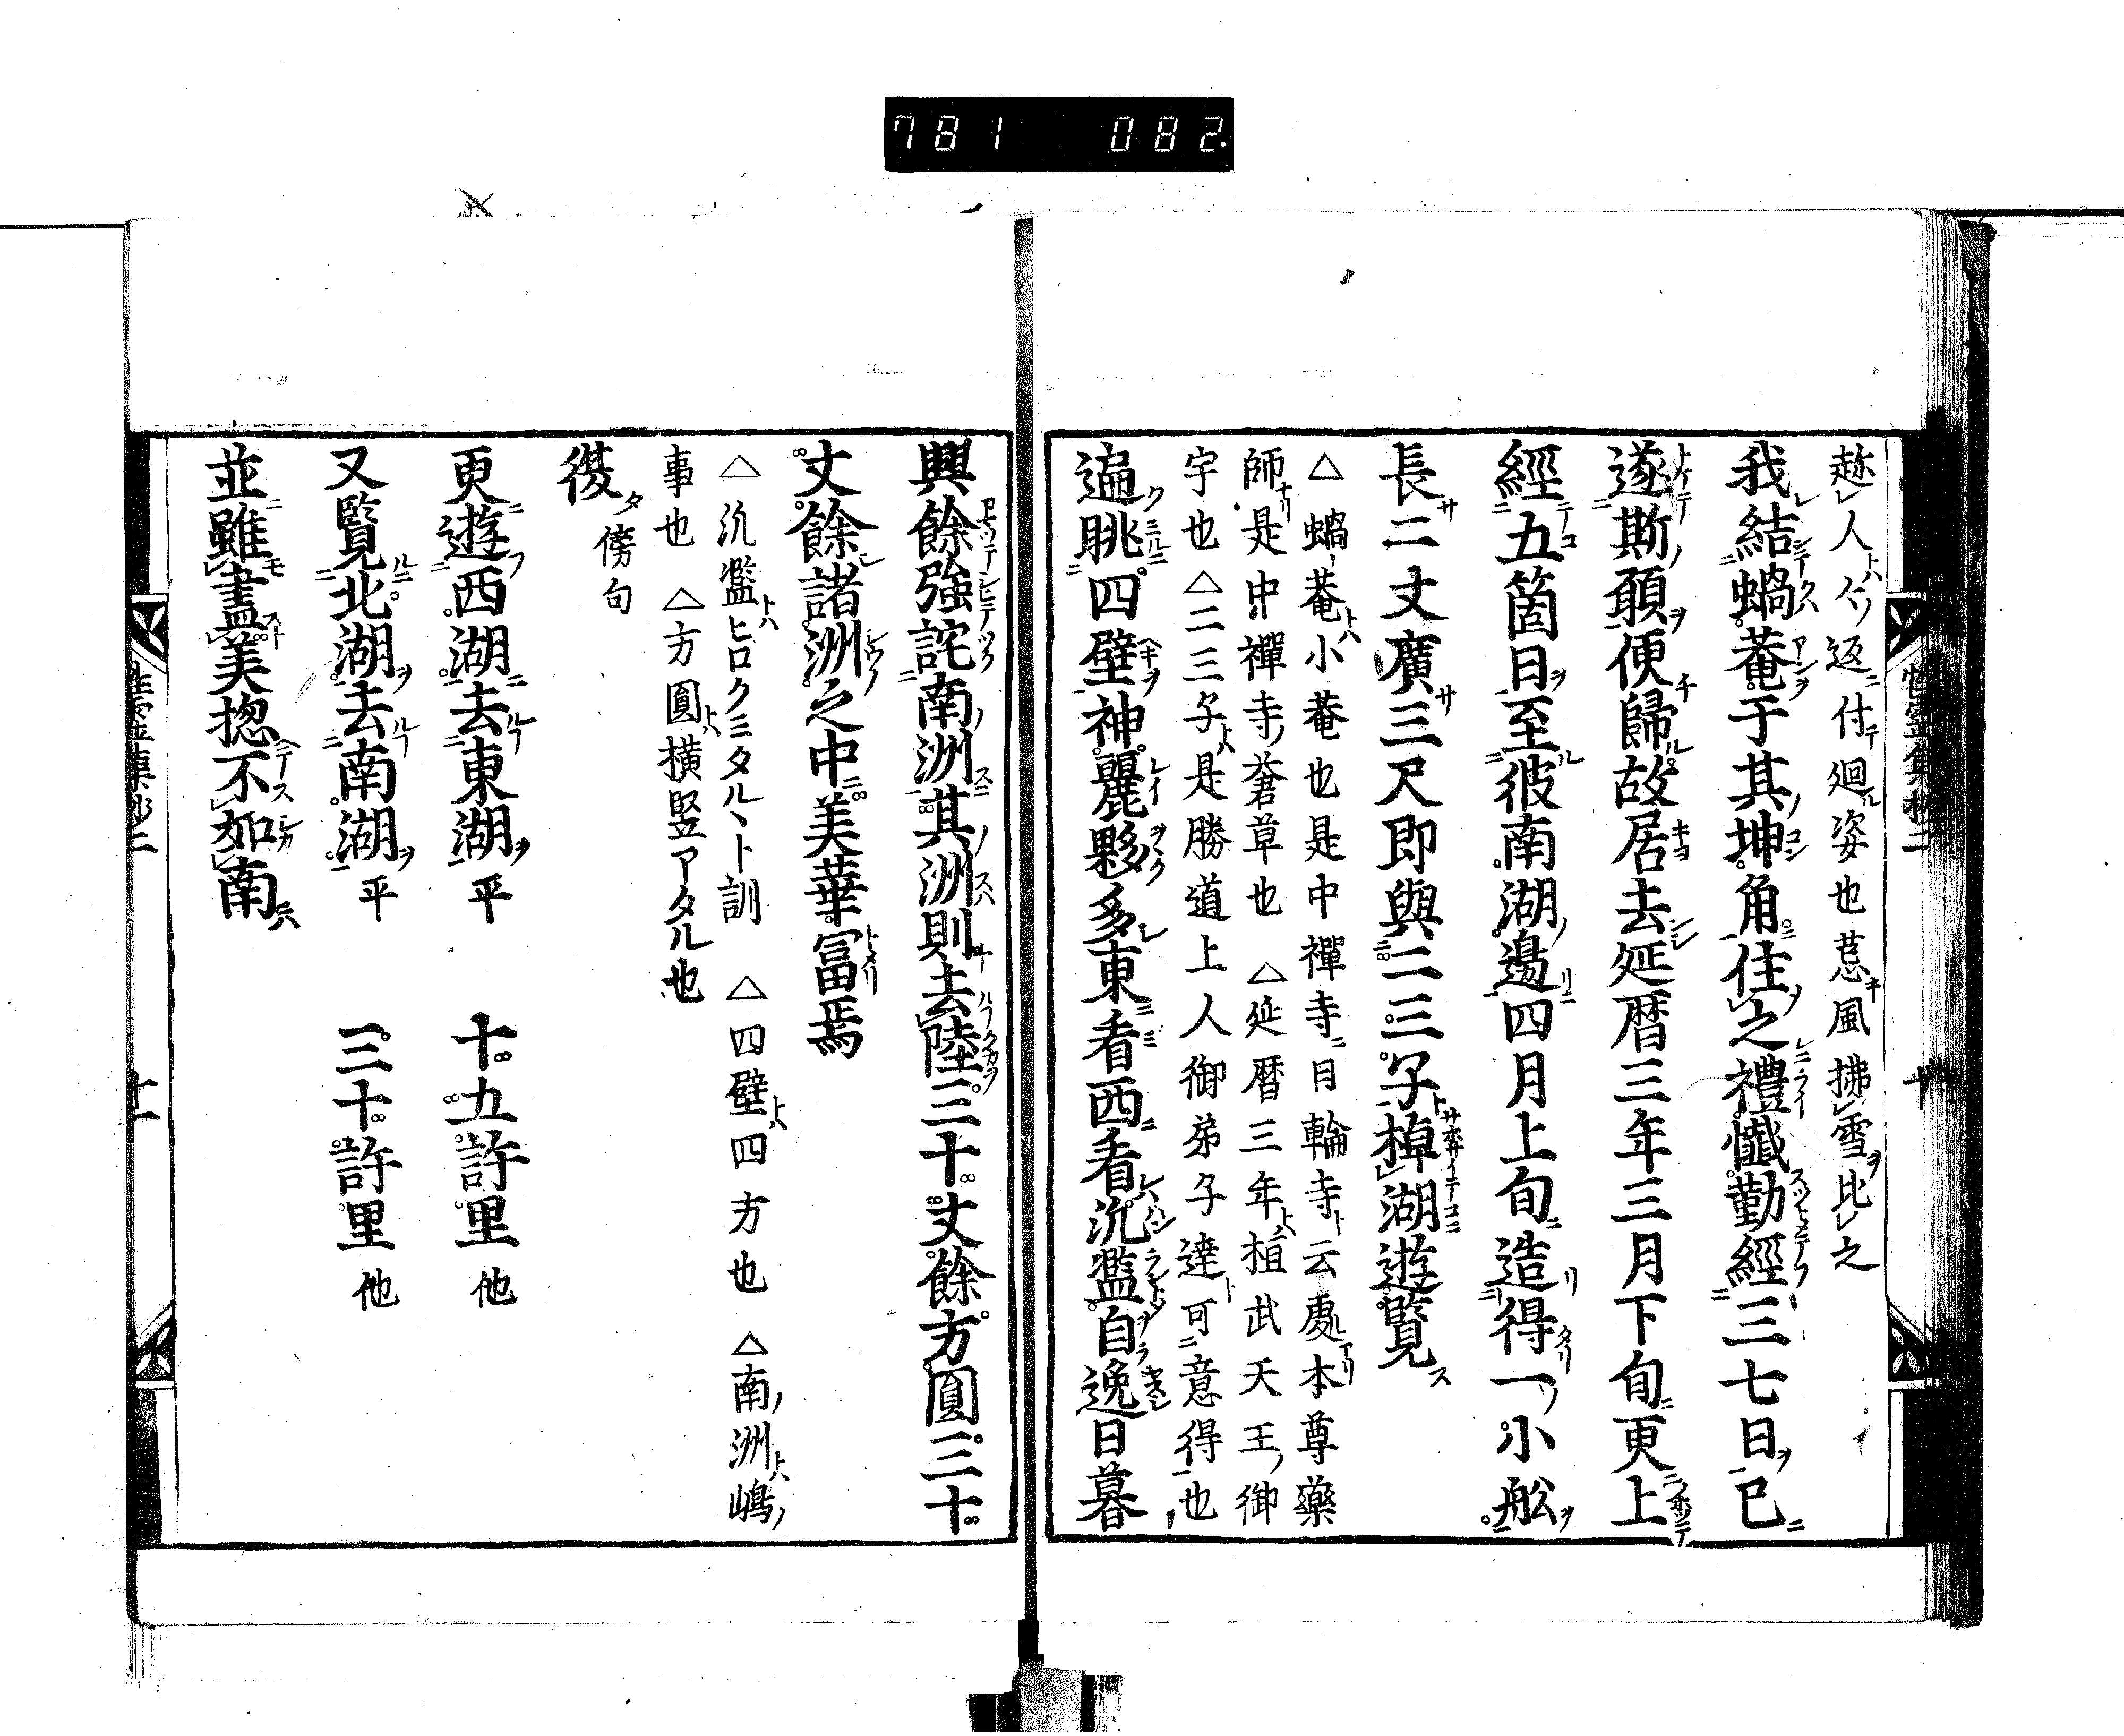 781 082
趂人トハ人ノ返ニ付テ廻ル姿也茋キ風拂雪ヲ比之
我結蝸菴于其坤角住之禮懺勤經三七日已
遂斯願便歸故居去延暦三年三月下旬更上
經五箇日至彼南湖邊四月上旬造得一小舩
長二丈廣三尺即與二三子棹湖遊覽
△蝸菴トハ小菴也是中禪寺ニ日輪寺ト云處アリ本尊藥
師ナリ是中禪寺ノ蒼草也 △延暦三年トハ桓武天王ノ御
宇也△二三子トハ是勝道上人御弟子達ト可意得也
遍眺四壁神麗夥多東看西看汎濫自逸日暮
興餘強詫南洲其洲則去陸三十丈餘方圓三十
丈餘諸洲之中美華冨焉
△汎濫トハヒロクミタルヽト訓 △四壁トハ四方也 △南洲トハ嶋ノ
事也 △方圓トハ横竪アタル也
復タ 傍句
更遊西湖去東湖 平 十五許里 他
又覽北湖去南湖 平 三十許里 他
並雖盡美揔不如南
性霊集抄二 十一